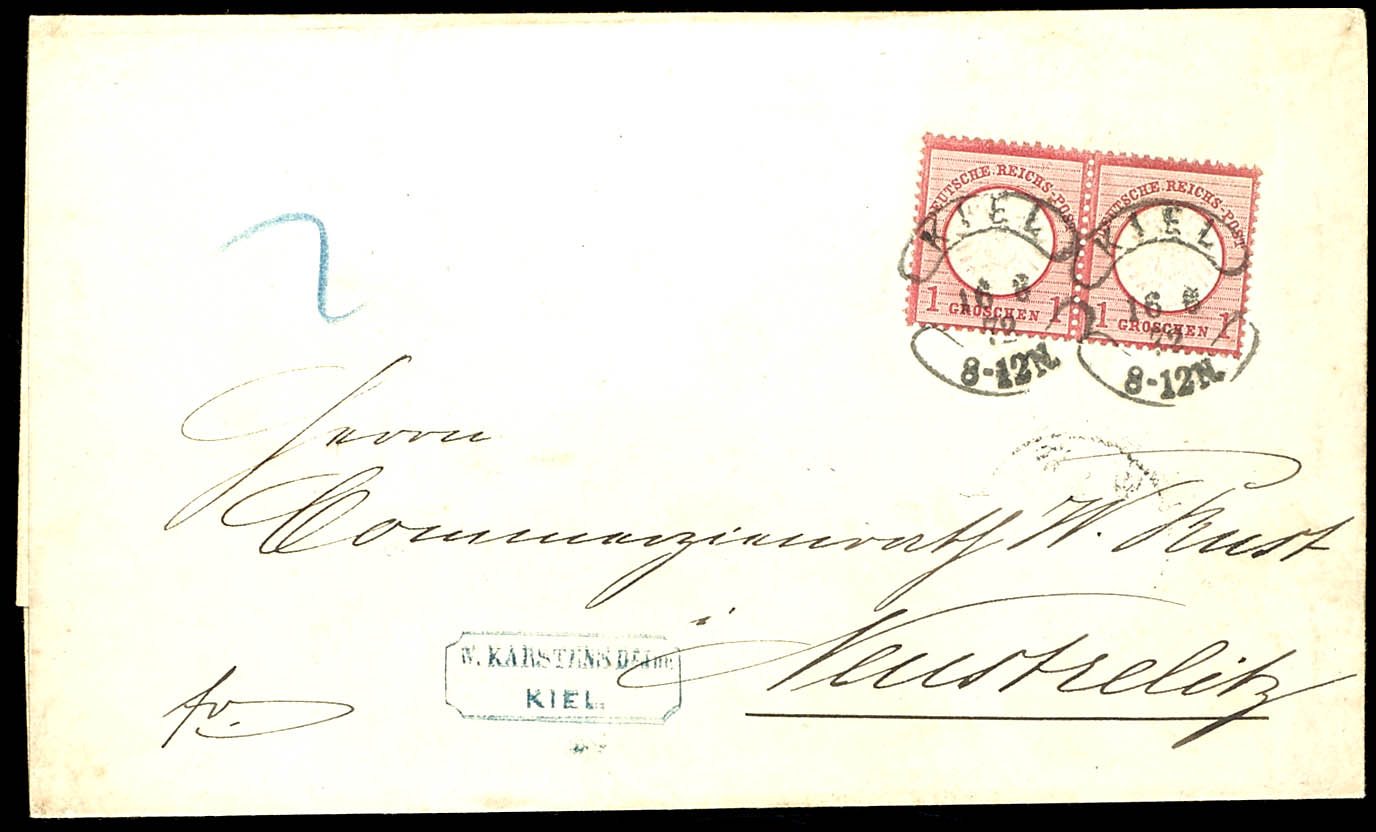 DEUTSCHE REICHS-POST
1 GROSCHEN 1
DEUTSCHE REICHS-POST
1 GROSCHEN 1
KIEL
16 8
72
8-12N.
KIEL
16 8
72
8-12N.
2
Herrn
Commerzienrath W. Rust
i
Neustrelitz
W. KARSTENS
KIEL.
fr.